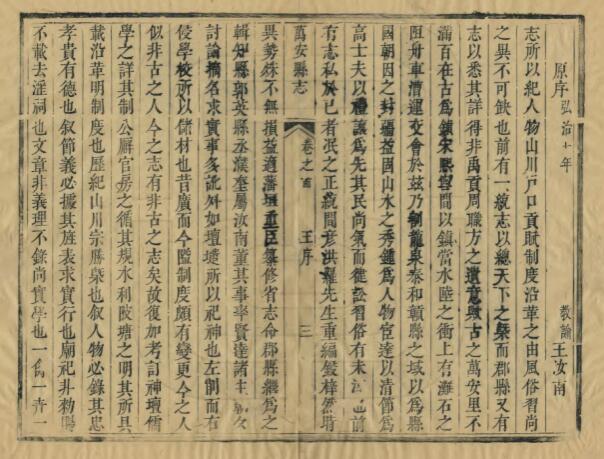 原序弘治十年　教諭王汝南
志所以紀人物山川戸口貢賦制度沿革之由風俗習尚
之異不可缺也前有一統志以總天下之槩而郡縣又有
志以悉其詳得非禹貢周職方之遺意歟古之萬安里不
滿百在古爲鎮宋熙寧間以鎮當水陸之衝上有灘石之
阻舟車漕運交會於茲乃制龍泉泰和贛縣之域以爲縣
國朝因之封疆益固山水之秀鍾爲人物宦達以清節爲
高士夫以禮讓爲先其民尚氣而健訟習俗有未 也前
有志私於已者泯之正統間彥洪羅先生重編嚴梓然時
萬安縣志　卷之首　王序　三
異勢殊不無損益適藩垣重臣纂修省志命郡縣繼爲之
輯知縣郭英縣丞濮奎屬汝南董其事率賢達諸士
討論摛名求實事多訛外如壇壝所以祀神也左制而右
侵學校所以儲材也昔廣而今隘制度頗有變更今之人
似非古之人今之志有非古之志矣故復加考訂神壇儒
學之詳其制公廨官房之循其規水利陂塘之明其所具
載沿革明制度也歷紀山川宗勝槩也叙人物必錄其忠
孝貴有德也叙節義必據其旌表求實行也廟祀非勅賜
不載去淫祠也文章非義理不錄尚實學也一爲一卉一